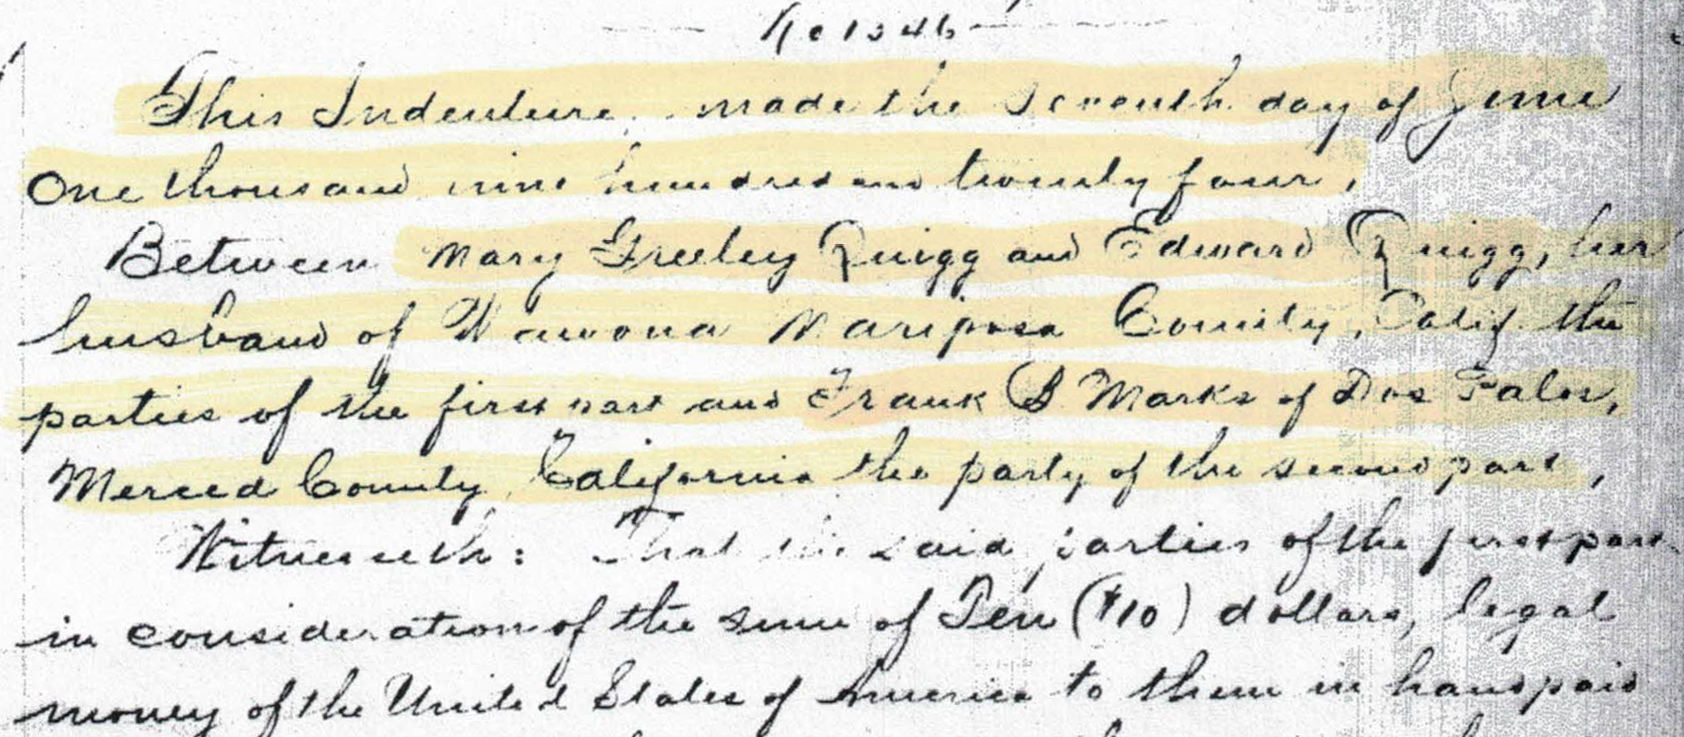 No 1346
This Indenture made the Seventh day of June
One thousand nine hundred and twenty four,
Between Mary Greeley Quigg and Edward Quigg, her
husband of Wawona Mariposa County, Calif. the
parties of the first part and Frank B Marks of Dos Palos,
Merced County, California the party of the second part,
Witnesseth: That the said parties of the first part
in consideration of the sum of Ten ($10) dollars, legal
money of the United States of America to them in hand paid